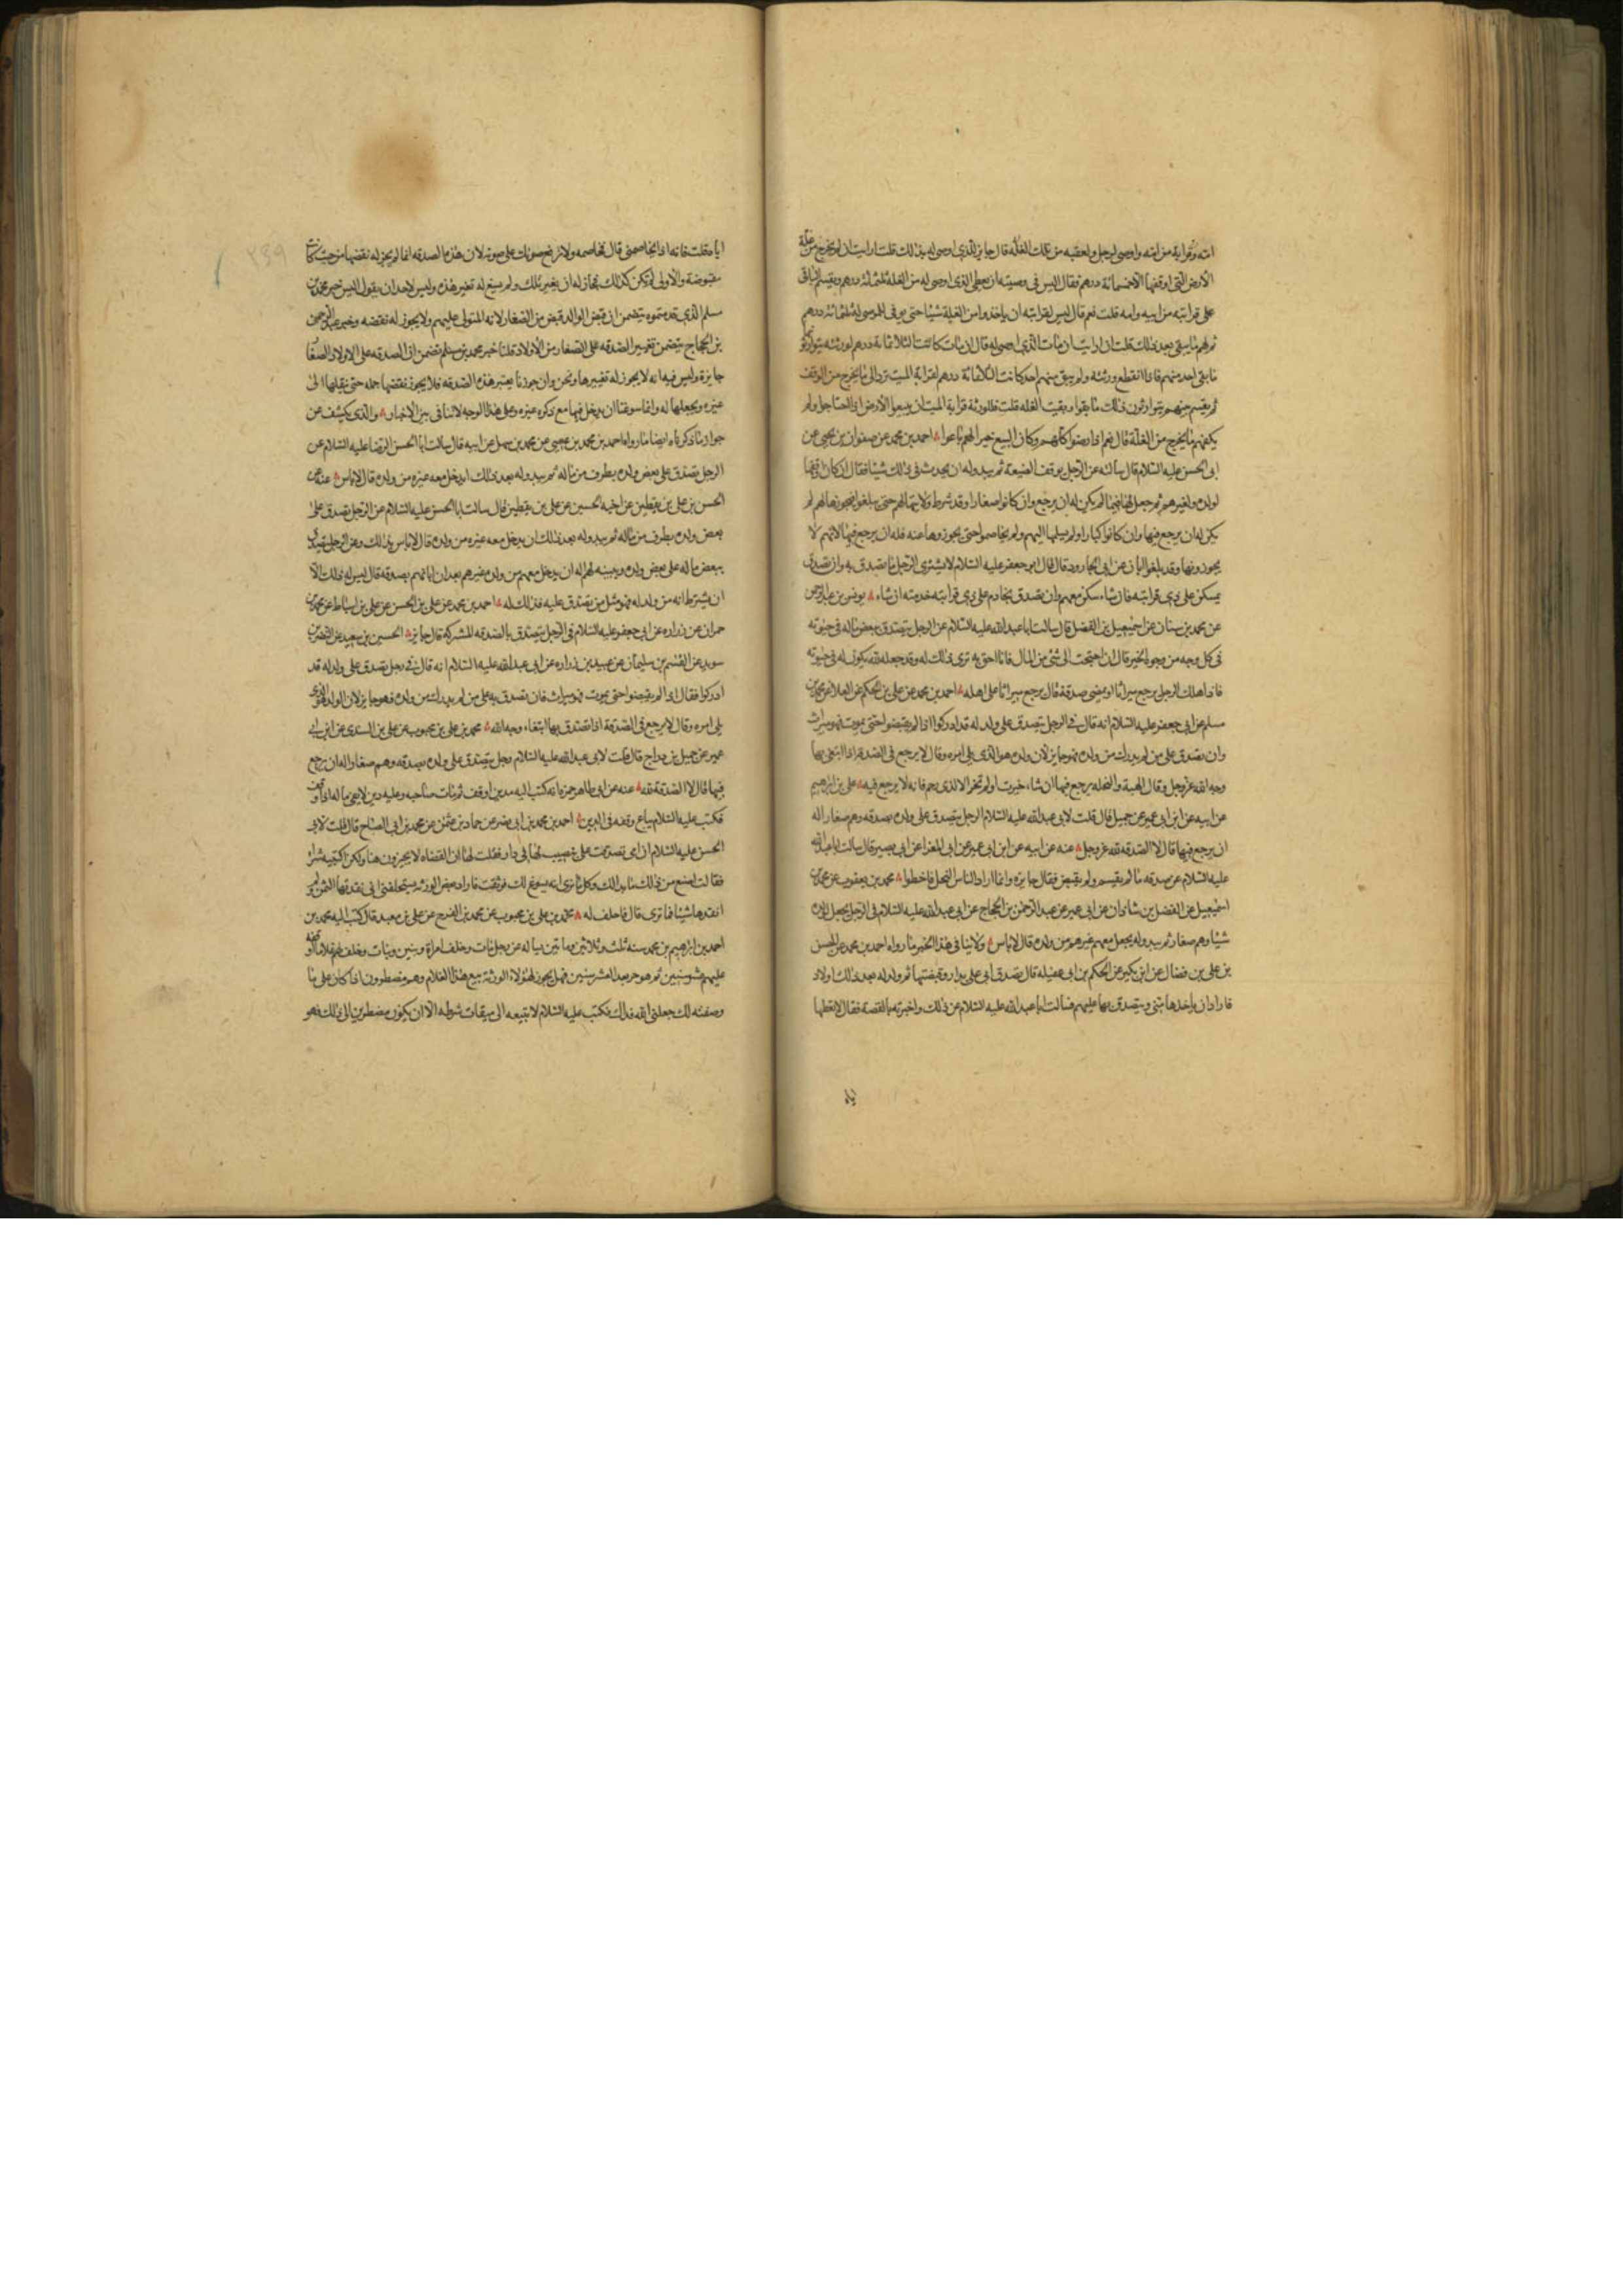 امه وقرابة من امه واوصى لرجل ولعقبه من تلك الغلة قال جايز للذى اوصى له بذلك قلت ارايت ان لم يخرج من غلة
الارض التى اوقفها الا خمسمائة درهم فقال اليس فى وصيته ان يعطى الذى اوصى له من الغلة ثلثمائة درهم ويقسم الباقى
على قرابته من ابيه وامه قلت نعم قال ليس لقرابته ان ياخذوا من الغلة شيئا حتى يوفى الموصى له ثلثمائة درهم
ثم لهم ما يبقى بعد ذلك قلت ارايت ان مات الذى اوصى له قال ان مات كانت الثلاثمائة درهم لورثته يتوارثونها
ما بقى احد منهم فاذا انقطع ورثته ولم يبق منهم احد كانت الثلاثمائة درهم لقرابة الميت ترد الى ما يخرج من الوقف
ثم يقسم بينهم يتوارثون ذلك ما بقوا وبقيت الغله قلت فللورثة قرابة الميت ان يبيعوا الارض اذا احتاجوا ولم
يكفهم ما يخرج من الغلة قال نعم اذا رضوا كلهم وكان البيع خيرا لهم باعوا احمد بن محمد عن صفوان بن يحيى عن
ابى الحسن عليه السلام قال سالته عن الرجل يوقف الضيعة ثم يبدو له ان يحدث فى ذلك شيئا فقال ان كان اوقفها
لولده ولغيرهم ثم جعل لها قيما لم يكن له ان يرجع وان كانوا صغارا وقد شرط ولايتها لهم حتى يبلغوا فيحوزها لهم لم
يكن له ان يرجع فيها وان كانوا كبارا ولم يسلمها اليهم ولم يخاصموا حتى يحوزوها عنه فله ان يرجع فيها لانهم لا
يحوزونها وقد بلغوا ابان عن ابى الجارود قال قال ابو جعفر عليه السلام لا يشترى الرجل ما تصدق به وان تصدق
بمسكن على ذى قرابته فان شاء سكن معهم وان تصدق بخادم على ذى قرابته خدمته ان شاء يونس بن عبد الرحمن
عن محمد بن سنان عن اسمعيل بن الفضل قال سالت ابا عبد الله عليه السلام عن الرجل يتصدق ببعض ماله فى حيوته
فى كل وجه من وجوه الخير قال ان احتجت الى شئ من المال فانا احق به ترى ذلك له وقد جعله لله يكون له فى حيوته
فاذا هلك الرجل يرجع ميراثا او يمضى صدقة قال يرجع ميراثا على اهله احمد بن محمد عن على بن الحكم عن العلا عن محمد بن
مسلم عن ابى جعفر عليه السلام انه قال فى الرجل يتصدق على ولد له قد ادركوا اذا لم يقبضوا حتى يموت فهو ميراث
وان تصدق على من لم يدرك من ولده فهو جايز لان ولده هو الذى يلى امره وقال لا يرجع فى الصدقة اذا ابتغى بها
وجه الله عز وجل وقال الهبة والنحله يرجع فيها ان شاء حيزت او لم تحز الا لذى رحم فانه لا يرجع فيه على بن ابرهيم
عن ابيه عن ابن ابى عمير عن جميل قال قلت لابى عبد الله عليه السلام الرجل يتصدق على ولده بصدقه وهم صغار اله
ان يرجع فيها قال لا الصدقه لله عز وجل عنه عن ابيه عن ابن ابى عمير عن ابى المغرا عن ابى بصير قال سالت ابا عبد الله
عليه السلام عن صدقه ما لم يقسم ولم يقبض فقال جايزه وانما اراد الناس النحل فاخطوا محمد بن يعقوب عن محمد بن
اسمعيل عن الفضل بن شاذان عن ابى عمير عن عبد الرحمن بن الحجاج عن ابى عبد الله عليه السلام فى الرجل يجعل لولده
شيئا وهم صغار ثم يبدو له يجعل معهم غيرهم من ولده قال لا باس ولا ينافى هذا الخبر ما رواه احمد بن محمد عن الحسن
بن على بن فضال عن ابن بكير عن الحكم بن ابى عقيله قال تصدق ابى على بدار وقبضتها ثم ولد له بعد ذلك اولاد
فاراد ان ياخذها منى ويتصدق بها عليهم فسالت ابا عبد الله عليه السلام عن ذلك واخبرته بالقصة فقال لا تعطها
اياه قلت فانه اذا يخاصمنى قال فخاصمه ولا ترفع صوتك على صوته لان هذه الصدقه انما لم يجز له نقضها من حيث كانت
مقبوضة والاولى لم تكن كذلك فجاز له ان يغير تلك ولم يسغ له تغير هذه وليس لاحد ان يقول اليس خبر محمد بن
مسلم الذى قدمتموه يتضمن ان قبض الوالد قبض من الصغار لانه المتولى عليهم ولا يجوز له نقضه وخبر عبد الرحمن
بن الحجاج يتضمن تغيير الصدقه على الصغار من الاولاد قلنا خبر محمد بن مسلم تضمن ان الصدقه على الاولاد الصغار
جايزة وليس فيه انه لا يجوز له تغييرها ونحن وان جوزنا تغيير هذه الصدقه فلا يجوز نقضها جمله حتى ينقلها الى
غيره ويجعلها له وانما سوغنا ان يدخل فيها مع ذكره غيره وعلى هذا الوجه لا تنافى بين الاخبار والذى يكشف عن
جواز ما ذكرناه ايضا ما رواه احمد بن محمد بن عيسى عن محمد بن سهل عن ابيه قال سالت ابا الحسن الرضا عليه السلام عن
الرجل يتصدق على بعض ولده بطرف من ماله ثم يبدو له بعد ذلك ان يدخل معه غيره من ولده قال لا باس عنه عن
الحسن بن على بن يقطين عن اخيه الحسين عن على بن يقطين قال سالت ابا الحسن عليه السلام عن الرجل يتصدق على
بعض ولده بطرف من ماله ثم يبدو له بعد ذلك ان يدخل معه غيره من ولده قال لا باس بذلك وعن الرجل يتصدق
ببعض ماله على بعض ولده ويبينه لهم اله ان يدخل معهم من ولده غيرهم بعد ان ابانهم بصدقه قال ليس له ذلك الا
ان يشترط انه من ولد له فهو مثل من تصدق عليه فذلك له احمد بن محمد عن على بن الحسن عن على بن اسباط عن محمد بن
حمران عن زراره عن ابى جعفر عليه السلام فى الرجل يتصدق بالصدقه المشتركه قال جايز الحسين بن سعيد عن النضر بن
سويد عن القسم بن سليمان عن عبيد بن زراره عن ابى عبد الله عليه السلام انه قال فى رجل تصدق على ولد له قد
ادركوا فقال اذا لم يقبضوا حتى يموت فهو ميراث فان تصدق به على من لم يدرك من ولده فهو جايز لان الوالد هو الذى
يلى امره وقال لا يرجع فى الصدقة اذا تصدق بها ابتغاء وجه الله محمد بن على بن محبوب عن على بن السندى عن ابن ابى
عمير عن جميل بن دراج قال قلت لابى عبد الله عليه السلام رجل يتصدق على ولده بصدقه وهم صغار اله ان يرجع
فيها قال لا الصدقة لله عنه عن ابى طاهر حمزه انه كتب اليه مدين اوقف ثم مات صاحبه وعليه دين لا يفى ماله اذا وقف
فكتب عليه السلام يباع وقفه فى الدين احمد بن محمد بن ابى نصر عن حماد بن عثمن عن محمد بن ابى الصباح قال قلت لابى
الحسن عليه السلام ان امى تصدقت على بنصيب لها فى دار فقلت لها ان القضاه لا يجيزون هذا ولكن اكتبيه شرى
فقالت اصنع من ذلك ما بدا لك وكل ما ترى انه يسوغ لك فوثقت فاراد بعض الورثه يستحلفنى انى نقدتها الثمن ولم
انقدها شيئا فما ترى قال فاحلف له محمد بن على بن محبوب عن محمد بن الفرج عن على بن معبد قال كتب اليه محمد بن
احمد بن ابرهيم بن محمد سنه ثلث وثلاثين وماتين يساله عن رجل مات وخلف امراة وبنين وبنات وخلف لهم غلاما اوقفه
عليهم عشر سنين ثم هو حر بعد العشر سنين فهل يجوز لهؤلاء الورثة بيع هذا الغلام وهم مضطرون اذا كان على ما
وصفته لك جعلنى الله فداك فكتب عليه السلام لا يبيعه الى ميقات شرطه الا ان يكون مضطرين الى ذلك فهو